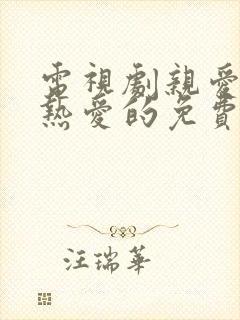 電視劇親愛
熱愛的免費
汪瑞華